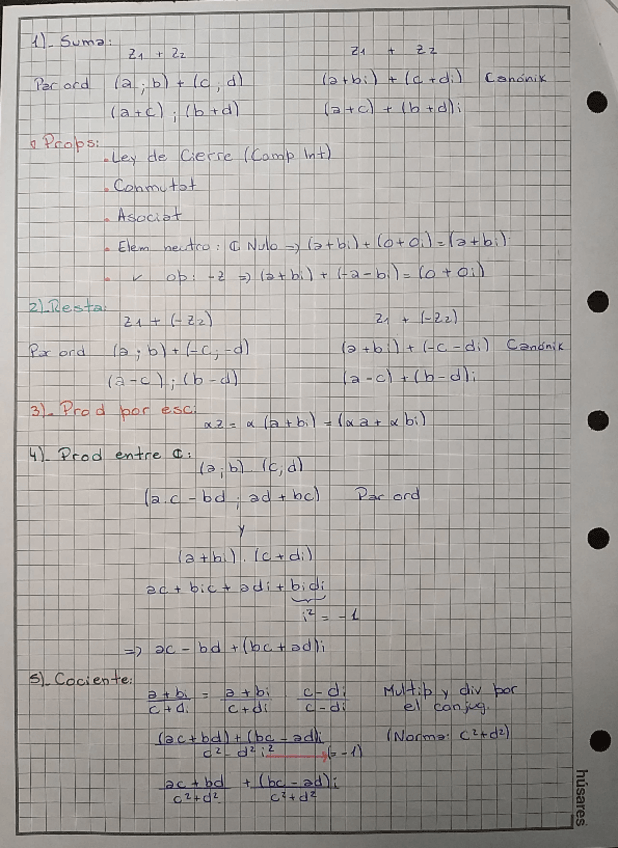 1)- Suma:
z1 + z2 z1 + z2
Par ord (a ; b) + (c ; d) (a+bi) + (c+di) Canónik
(a+c) ; (b+d) (a+c) + (b+d)i
Props:
• Ley de Cierre (Comp Int)
• Conmutat
• Asociat
• Elem neutro: ℂ Nulo => (a+bi) + (0+0i) = (a+bi)
• op: -z => (a+bi) + (-a-bi) = (0+0i)
2)- Resta:
z1 + (-z2) z1 + (-z2)
Par ord (a ; b) + (-c ; -d) (a+bi) + (-c-di) Canónik
(a-c) ; (b-d) (a-c) + (b-d)i
3)- Prod por esc:
αz = α (a+bi) = (αa + αbi)
4)- Prod entre ℂ:
(a;b) (c,d)
(a.c - bd ; ad + bc) Par ord
y
(a+bi) . (c+di)
ac + bic + adi + bidi
i² = -1
=> ac - bd + (bc+ad)i
5)- Cociente:
a+bi = a+bi c-di Multip y div por
c+di c+di c-di el conjug.
(ac+bd) + (bc-ad)i (Norma: c²+d²)
d² - d² i² (-1)
ac+bd + (bc-ad)i
c²+d² c²+d²
húsares